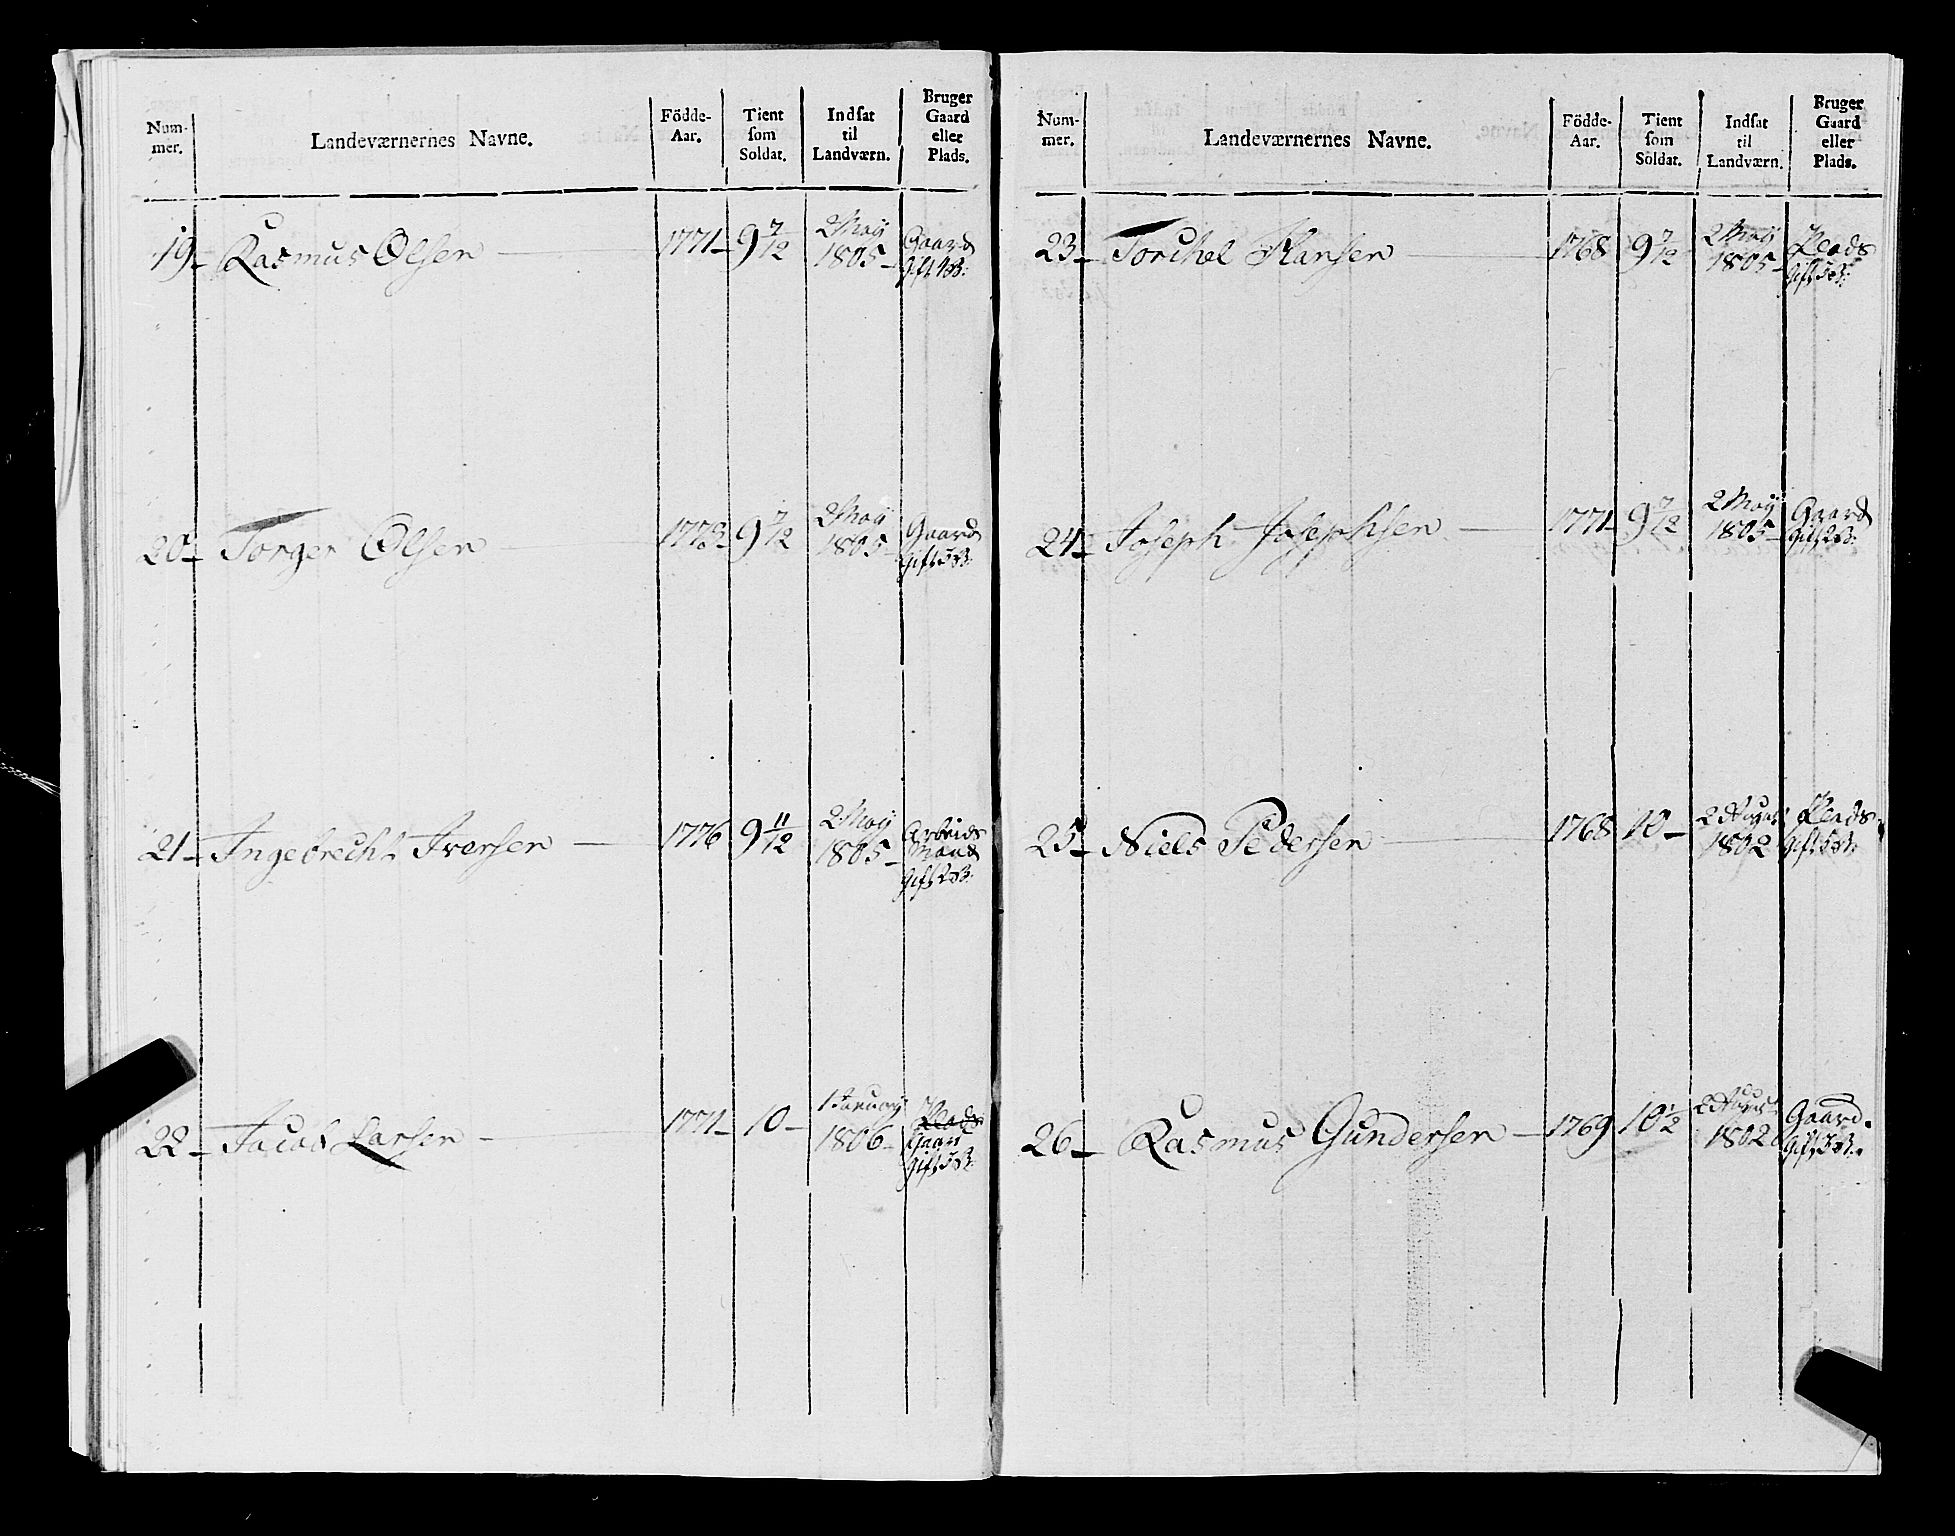 Num-
mer.
Landeværnernes Navne.
Födde-
Aar.
Tient
som
Soldat.
Indsat
til
Landværn.
Bruger
Gaard
eller
Plads.
19 Rasmus Olsen 1771 9 7/12 2 May 1805 Gaard
Gift 4 B:
20 Torger Olsen 1773 9 7/12 2 May 1805 Gaard
Gift 3 B:
21 Ingebrecht Iversen 1776 9 11/12 2 May 1805 Arbeids
Mand
Gift 2 B:
22 Jacob Larsen 1771 10 1 January 1806 Plads
Gaard
Gift 3 B:
Num-
mer.
Landeværnernes Navne.
Födde-
Aar.
Tient
som
Soldat.
Indsat
til
Landværn.
Bruger
Gaard
eller
Plads.
23 Torchel Hansen 1768 9 7/12 2 May 1805 Plads
Gift 3 B:
24 Joseph Josephsen 1771 9 7/12 2 May 1805 Gaard
Gift 2 B:
25 Niels Pedersen 1768 10 2 1802 Plads
Gift B:
26 Rasmus Gundersen 1769 10 1/2 2 1802 Gaard.
Gift 3 B: